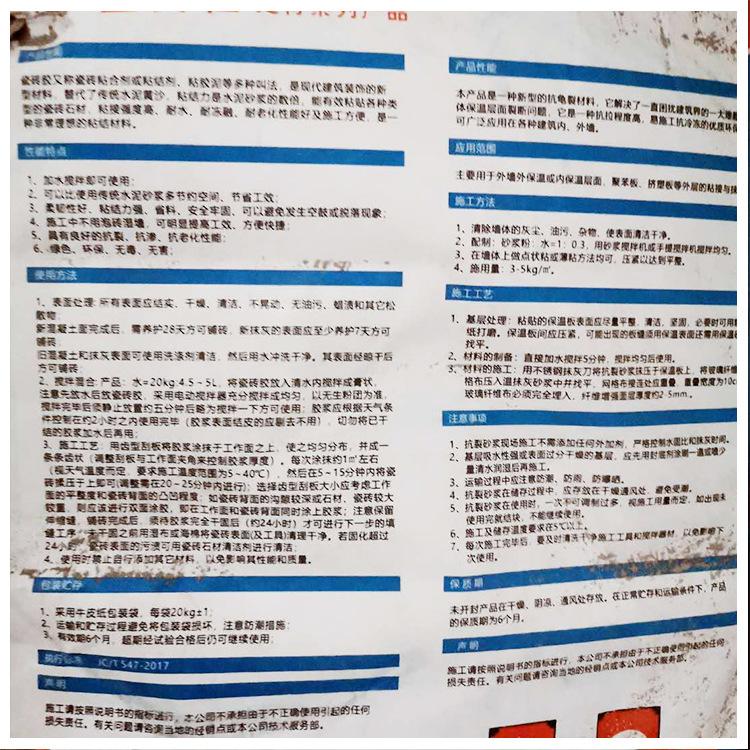 系列产品
瓷砖胶又称瓷砖粘合剂或粘结剂、粘胶泥等多种叫法，是现代建筑装饰的新
型材料，替代了传统水泥黄沙，粘结力是水泥砂浆的数倍，能有效粘贴各种类
型的瓷砖石材，粘接强度高、耐水、耐冻融、耐老化性能好及施工方便，是一
种非常理想的粘结材料。
性能特点
1、加水搅拌即可使用；
2、可以比使用传统水泥砂浆多节约空间、节省工效；
3、柔韧性好，粘结力强、省料，安全牢固，可以避免发生空鼓或脱落现象；
4、施工中不用泡砖湿墙，可明显提高工效，方便快捷；
5、具有良好的抗裂、抗渗、抗老化性能；
6、绿色、环保、无毒、无害；
使用方法
1、表面处理:所有表面应结实、干燥、清洁、不晃动、无油污、蜡渍和其它松
散物；
新混凝土面完成后，需养护28天方可铺砖，新抹灰的表面应至少养护7天方可
铺砖；
旧混凝土和抹灰表面可使用洗涤剂清洁，然后用水冲洗干净。其表面经晾干后
方可铺砖；
2、搅拌混合:产品：水=20kg:4.5－5L，将瓷砖胶放入清水内搅拌成膏状，
注意先放水后放瓷砖胶，采用电动搅拌器充分搅拌成均匀，以无生粉团为准，
搅拌完毕后须静止放置约五分钟后略为搅拌一下方可使用；胶浆应根据天气条
件控制在约2小时之内使用完毕（胶浆表面结皮的应剔去不用），切勿将已干
结的胶浆加水后再用；
3、施工工艺：用齿型刮板将胶浆涂抹于工作面之上，使之均匀分布，并成一
条条齿状（调整刮板与工作面夹角来控制胶浆厚度）。每次涂抹约1㎡左右
（视天气温度而定，要求施工温度范围为5～40℃），然后在5～15分钟内将瓷
砖揉压于上即可(调整需在20～25分钟内进行)；选择齿型刮板大小应考虑工作
面的平整度和瓷砖背面的凸凹程度；如瓷砖背面的沟隙较深或石材、瓷砖较大
较重，则应该进行双面涂胶，即在工作面和瓷砖背面同时涂上胶浆；注意保留
伸缩缝，铺砖完成后，须待胶浆完全干固后（约24小时）才可进行下一步的填
缝工序；干固之前用湿布或海棉将瓷砖表面(及工具)清理干净。若固化超过
24小时，瓷砖表面的污渍可用瓷砖石材清洁剂进行清洁；
4、使用时禁止自行添加其它材料，以免影响其性能和质量。
包装贮存
1、采用牛皮纸包装袋，每袋20kg±1；
2、运输和贮存过程避免将包装袋损坏，注意防潮措施；
3、有效期6个月，超期经试验合格后仍可继续使用；
执行标准 JC/T 547-2017
声明
施工请按照说明书的指标进行，本公司不承担由于不正确使用引起的任何
损失责任。有关问题请咨询当地的经销点或本公司技术服务部。
产品性能
本产品是一种新型的抗龟裂材料，它解决了一直困扰建筑界的一大难题
体保温层面裂断问题，它是一种抗拉程度高，易施工抗冷冻的优质环保
可广泛应用在各种建筑内、外墙。
应用范围
主要用于外墙外保温或内保温层面，聚苯板、挤塑板等外层的粘接与抹
施工方法
1、清除墙体的灰尘、油污、杂物，使表面清洁干净。
2、配制：砂浆粉：水=1：0.3，用砂浆搅拌机或手提搅拌机搅拌均匀。
3、在墙体上做点状粘或薄粘方法均可，压紧以达到平整。
4、施用量：3-5kg/㎡。
施工工艺
1、基层处理：粘贴的保温板表面应尽量平整，清洁，坚固，必要时可用
纸打磨。保温板间应压紧，可能出现的板缝须用保温表面还需用保温
找平。
2、材料的制备：直接加水搅拌5分钟，搅拌均匀后使用。
3、材料的施工：用不锈钢抹灰刀将抗裂砂浆抹压于保温板上，将玻璃纤维
格布压入温抹灰砂浆中并找平，网格布搜连处应重叠，重叠宽度为10c
玻璃纤维布必须完全埋入，纤维增强面层厚度约2-5mm。
注意事项
1、抗裂砂浆现场施工不需添加任何外加剂，严格控制水固比和抹灰时间。
2、基层吸水性强或表面过分干燥的基层，应先用封底剂涂刷一道或喷少
量清水润湿后再施工。
3、运输过程中应注意防潮、防雨、防曝晒。
4、抗裂砂浆在储存过程中，应存放在干燥通风处，避免受潮。
5、抗裂砂浆在使用时，一次不可调制过多，视施工用量而定，如出现未
使用完就结块，不能继续使用。
6、施工及储存温度要求在5℃以上。
7、每次施工完毕后，要及时清洗干净施工工具和搅拌器材，以免影响下
次使用。
保质期
未开封产品在干燥、阴凉、通风处存放。在正常贮存和运输条件下，产品
的保质期为6个月。
声明
施工请按照说明书的指标进行，本公司不承担由于不正确使用引起的任何
损失责任。有关问题请咨询当地的经销点或本公司技术服务部。